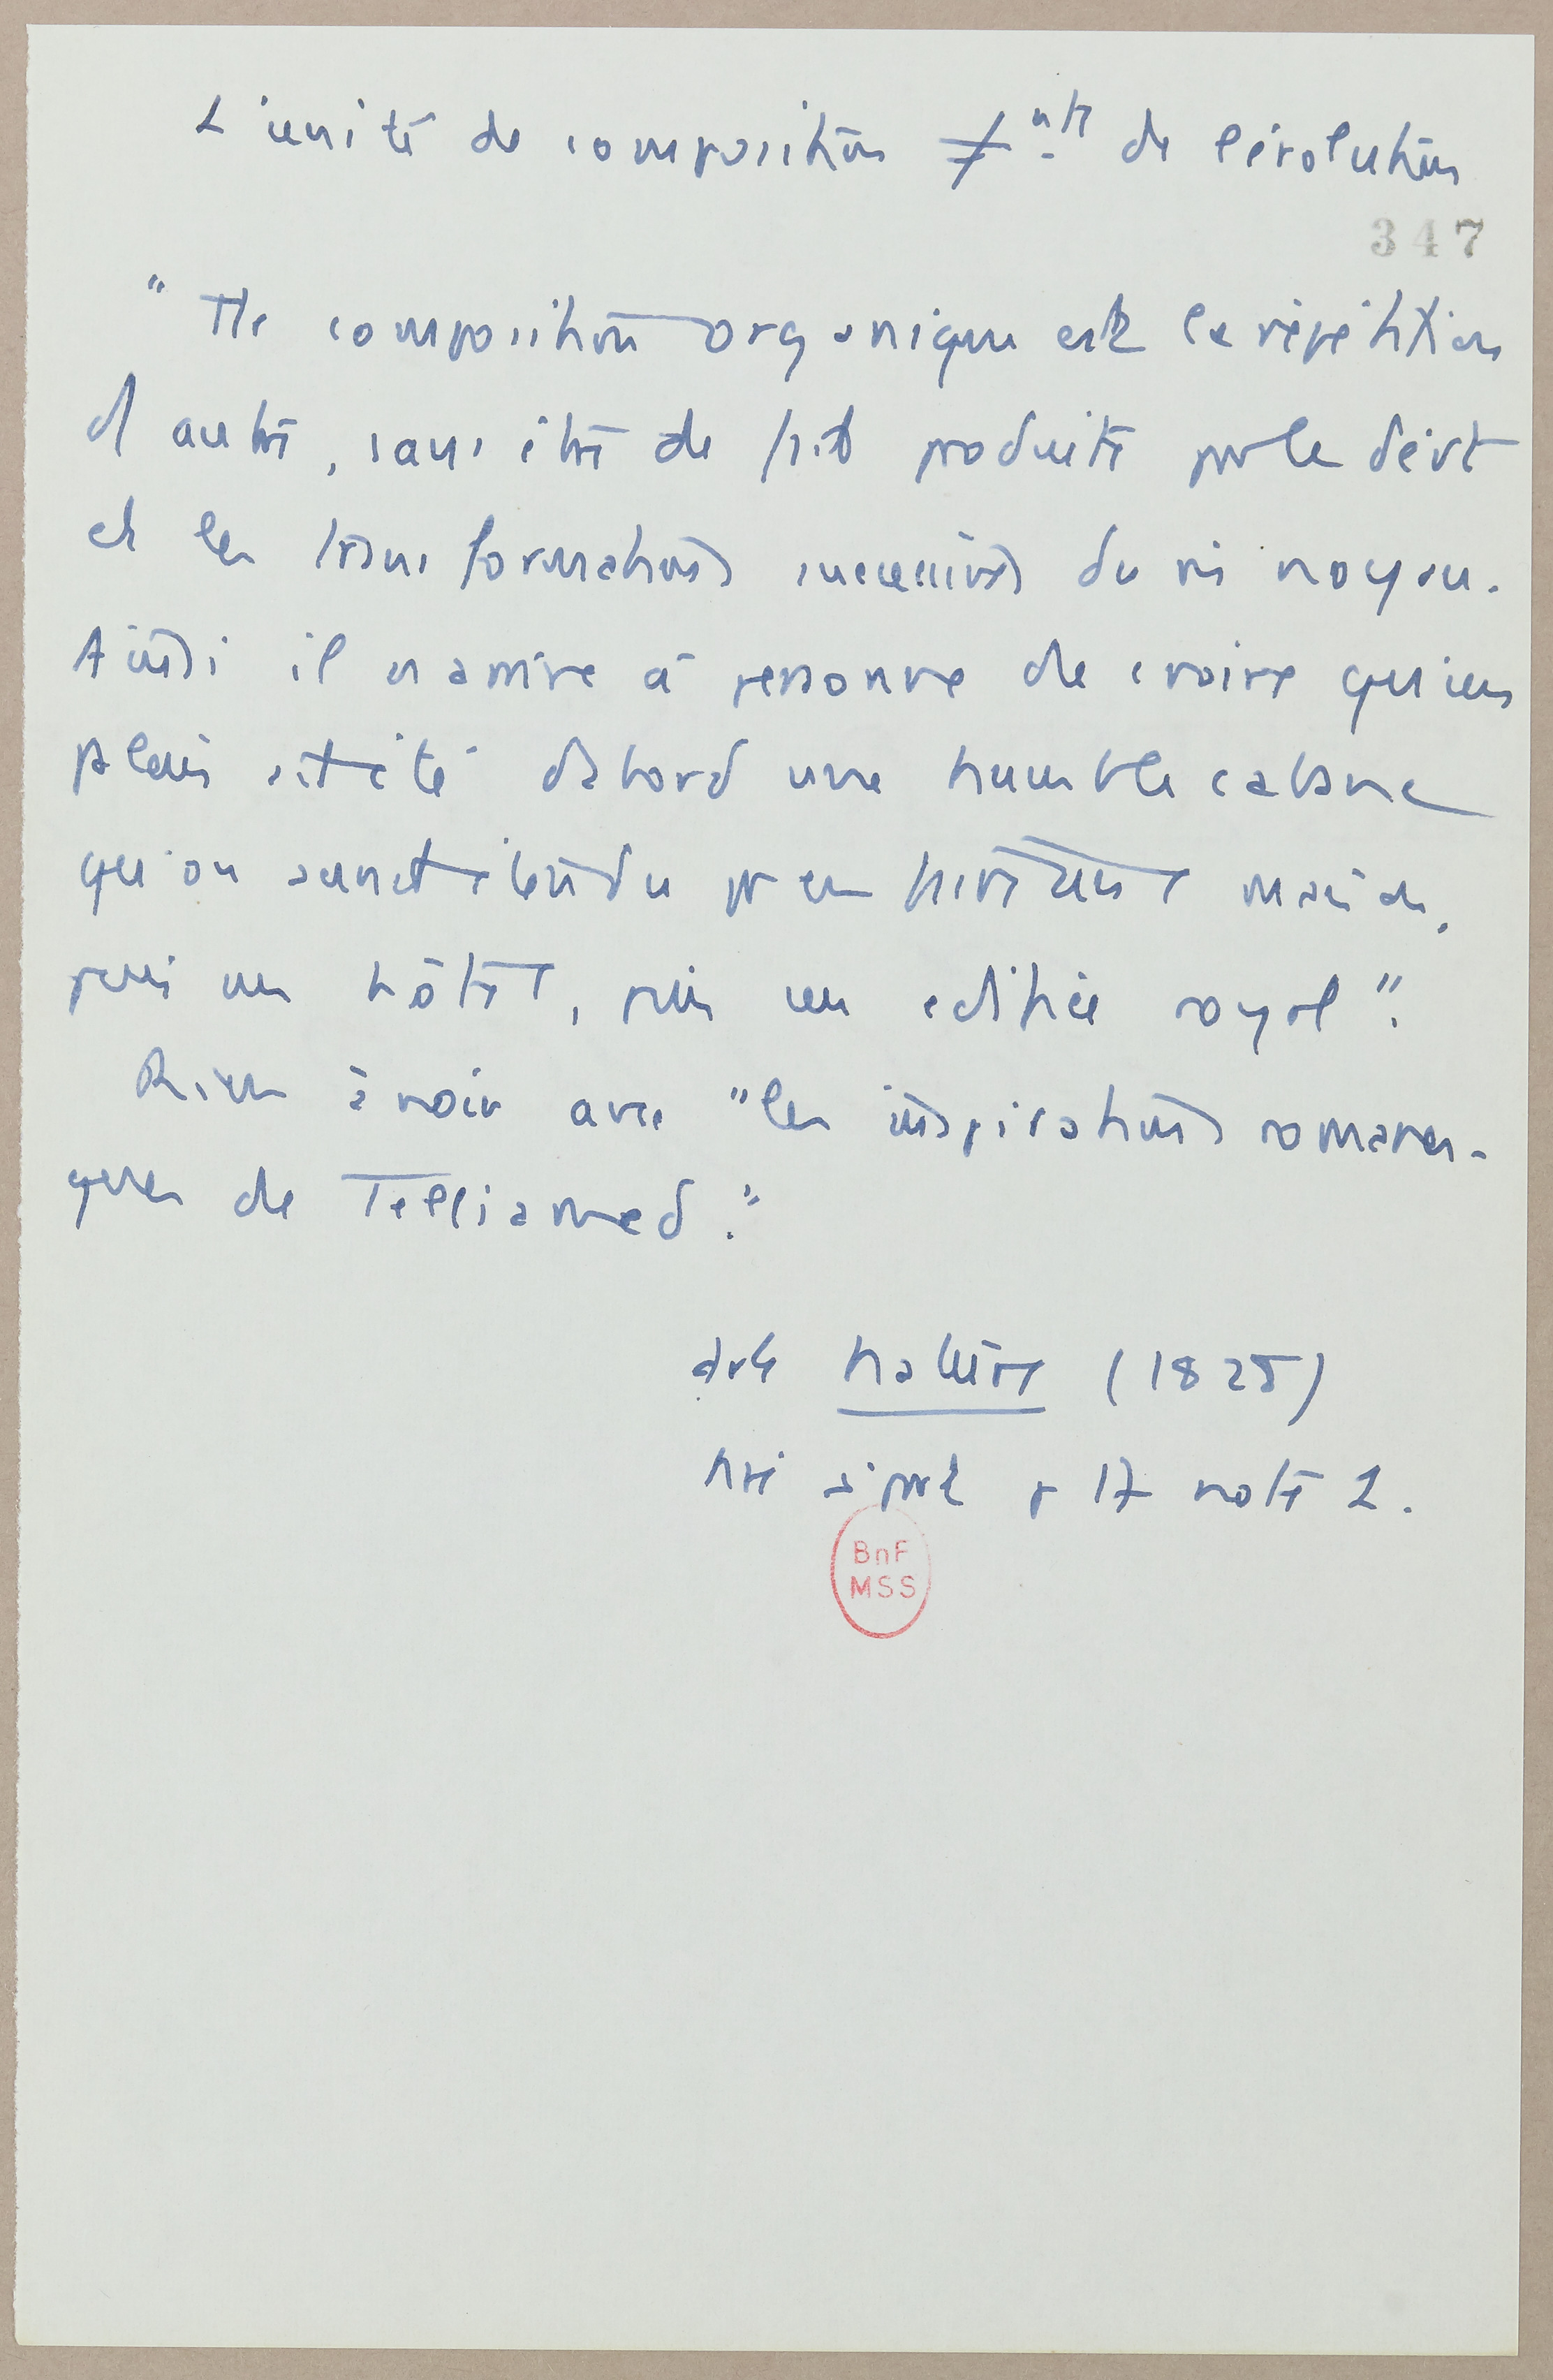 L'unité de composition ≠ unité de l'évolution
347
"Tte composition organique est la répétition
d'autres, sans être de fait produite par le dévt
et les transformations successives du m noyau.
Ainsi il n'arrive à personne de croire qu'un
palais ait été d'abord une humble cabane
qu'on aurait étendu pr en faire une maison,
puis un hôtel, puis un édifice royal".
Rien à voir avec "les inspirations romanes-
ques de Telliamed."
art Nature (1825)
à part p 17 note 1.
BnF
MSS